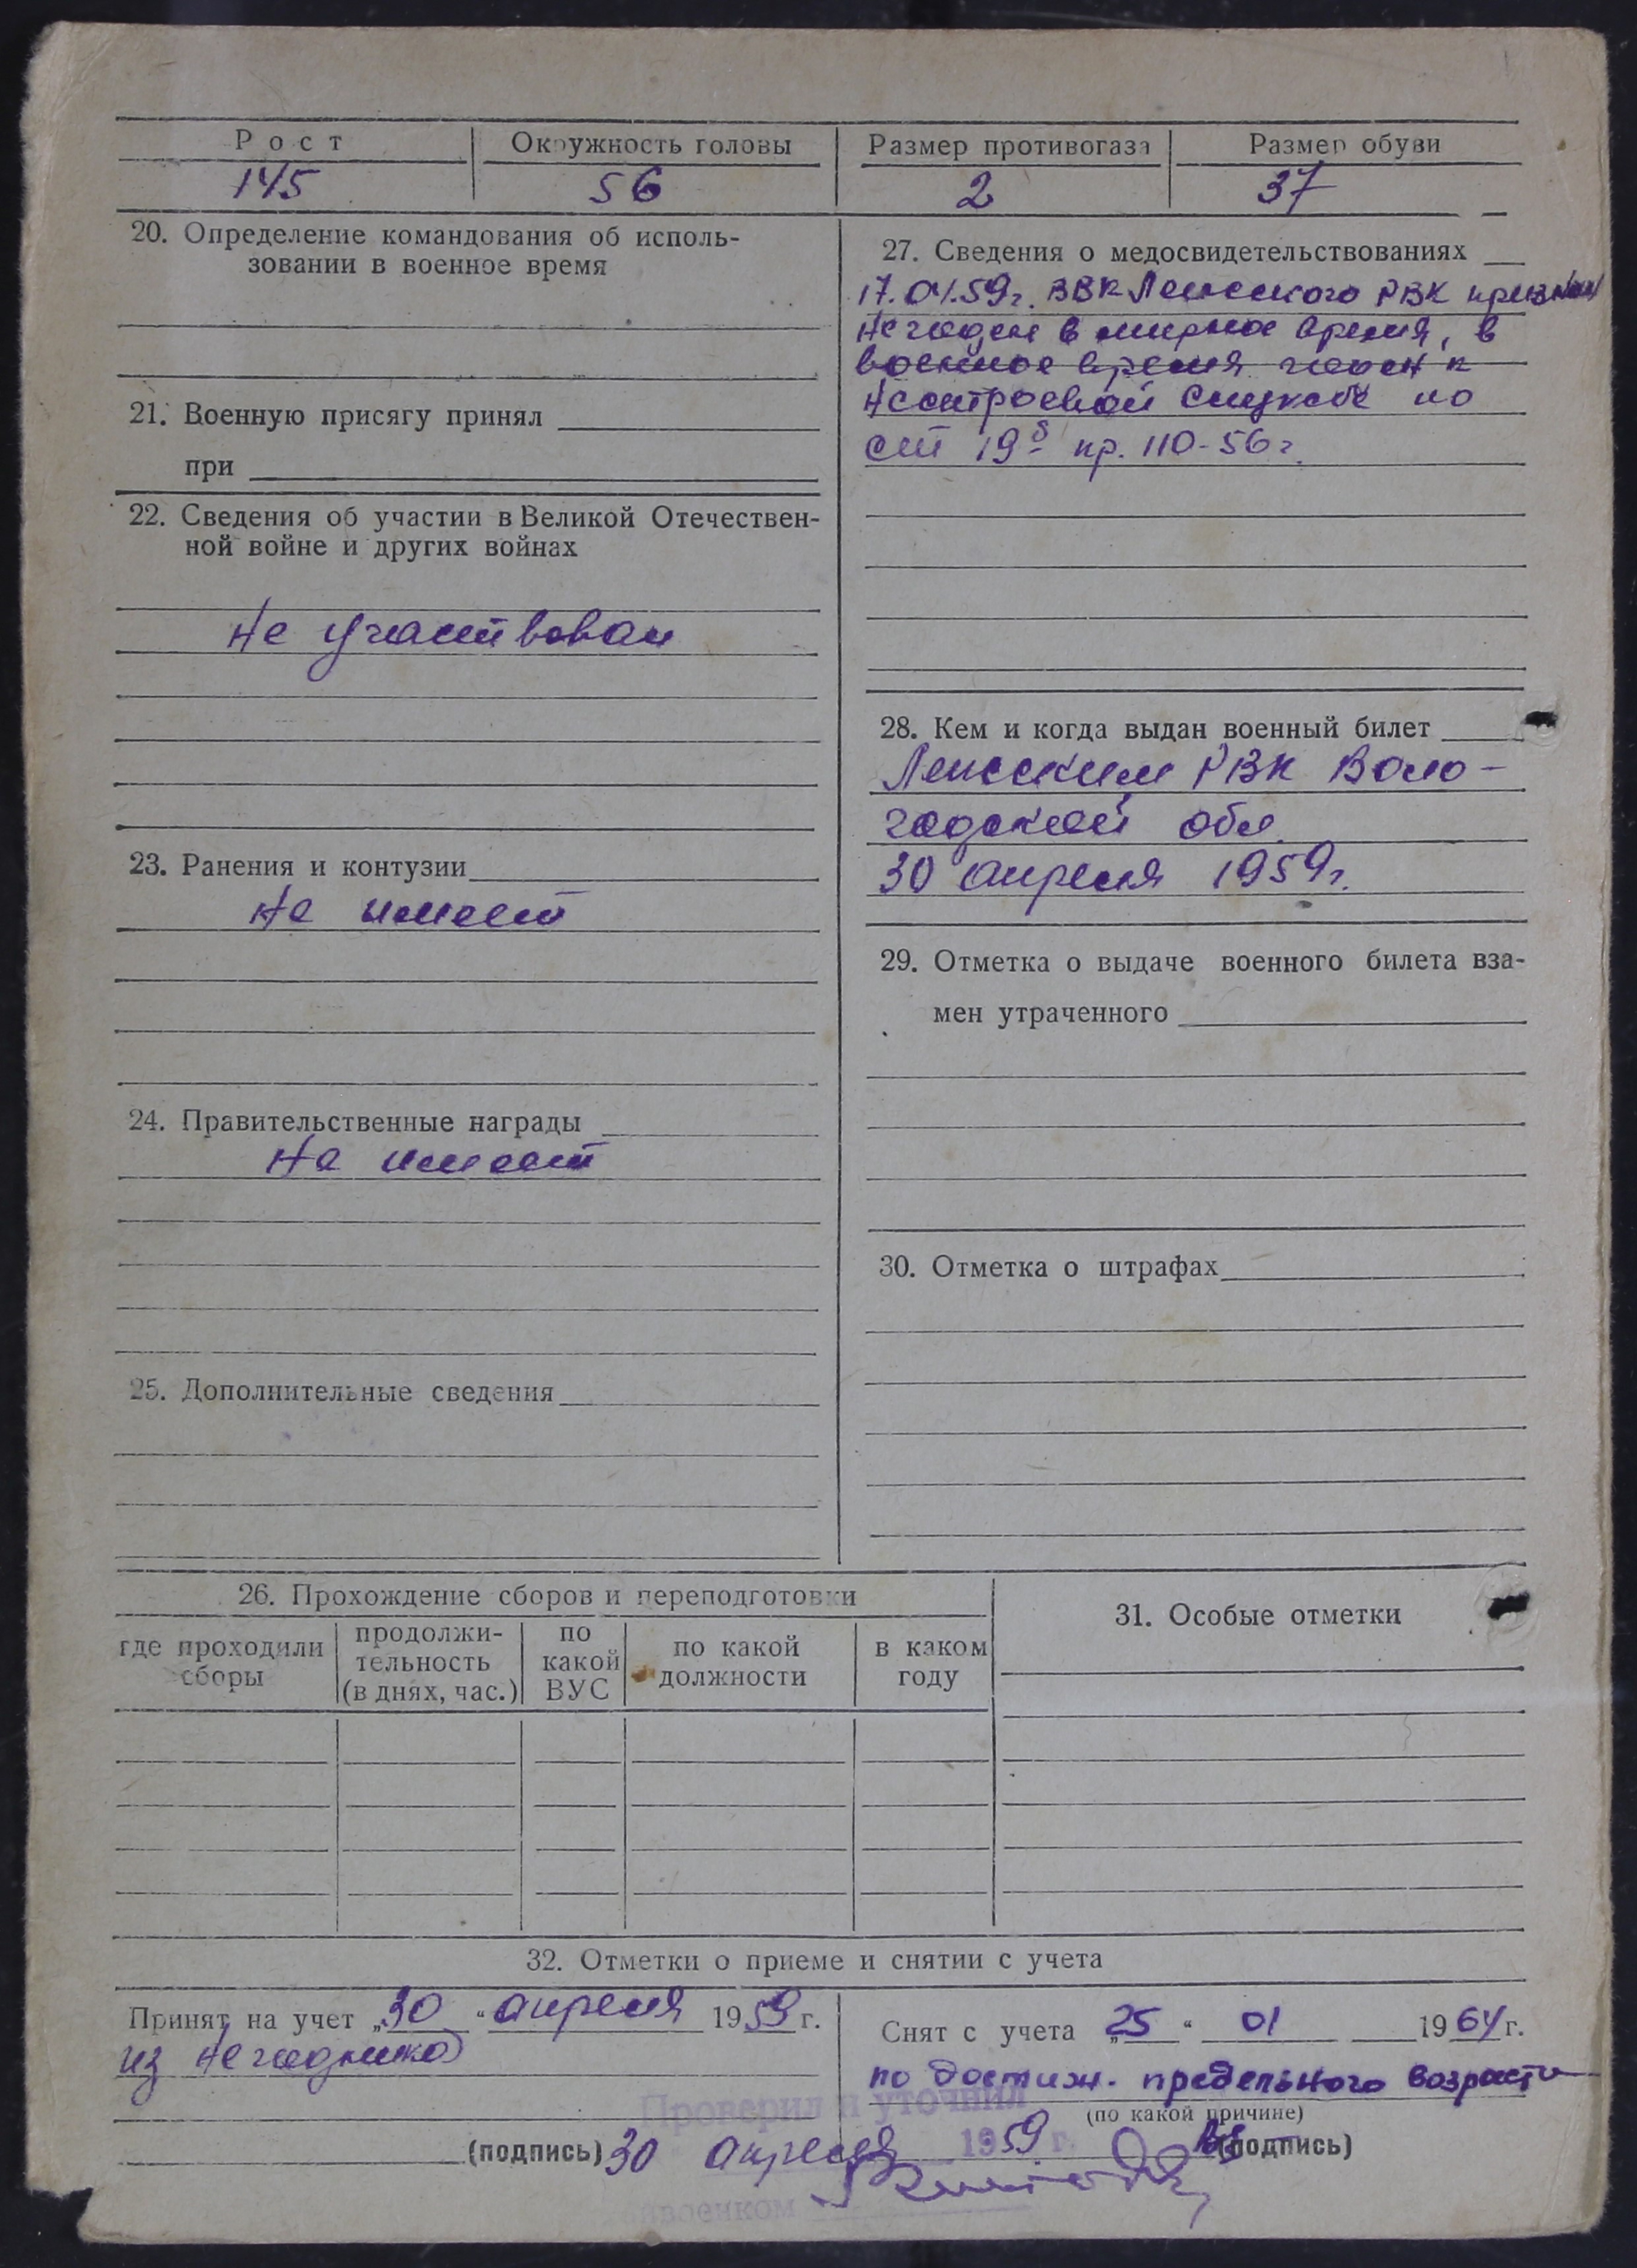 Рост Окружность головы Размер противогаза Размер обуви
145 56 2 37
20. Определение командования об исполь-
зовании в военное время
21. Военную присягу принял
при
22. Сведения об участии в Великой Отечествен-
ной войне и других войнах
Не участвовал
23. Ранения и контузии
Не имеет
24. Правительственные награды
Не имеет
25. Дополнительные сведения
27. Сведения о медосвидетельствованиях
17.04.59г. ВВК Ленского РВК признан
Негоден в мирное время, в
военное время годен к
Нестроевой службе по
ст 19б пр. 110-56г.
28. Кем и когда выдан военный билет
Ленским РВК Воло-
годской обл
30 апреля 1959г.
29. Отметка о выдаче военного билета вза-
мен утраченного
30. Отметка о штрафах
26. Прохождение сборов и переподготовки
где проходили
сборы
продолжи-
тельность
(в днях, час.)
по
какой
ВУС
по какой
должности
в каком
году
31. Особые отметки
32. Отметки о приеме и снятии с учета
Принят на учет „30“ апреля 1959 г.
из негодников
(подпись)
Снят с учета „25“ 01 1964 г.
по достиж. предельного возраста
(по какой причине)
(подпись)
Проверил и уточнил
30 апреля 1959 г.